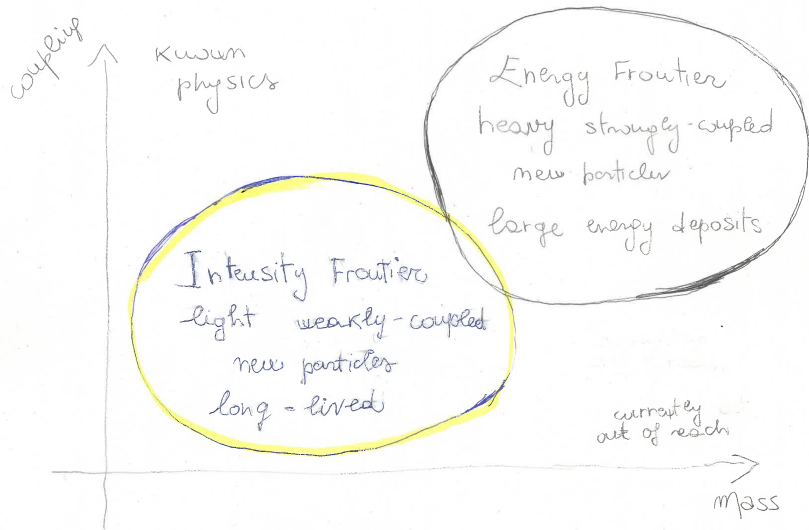 coupling
Known
physics
Energy Frontier
heavy strongly-coupled
new particles
large energy deposits
Intensity Frontier
light weakly-coupled
new particles
long-lived
currently
out of reach
Mass